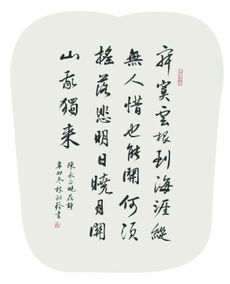 寂寞雲根到海涯縱
無人惜也能開何須
搖落悲明日曉月關
山我獨來
陳永正晚花詩
辛卯冬林玲書